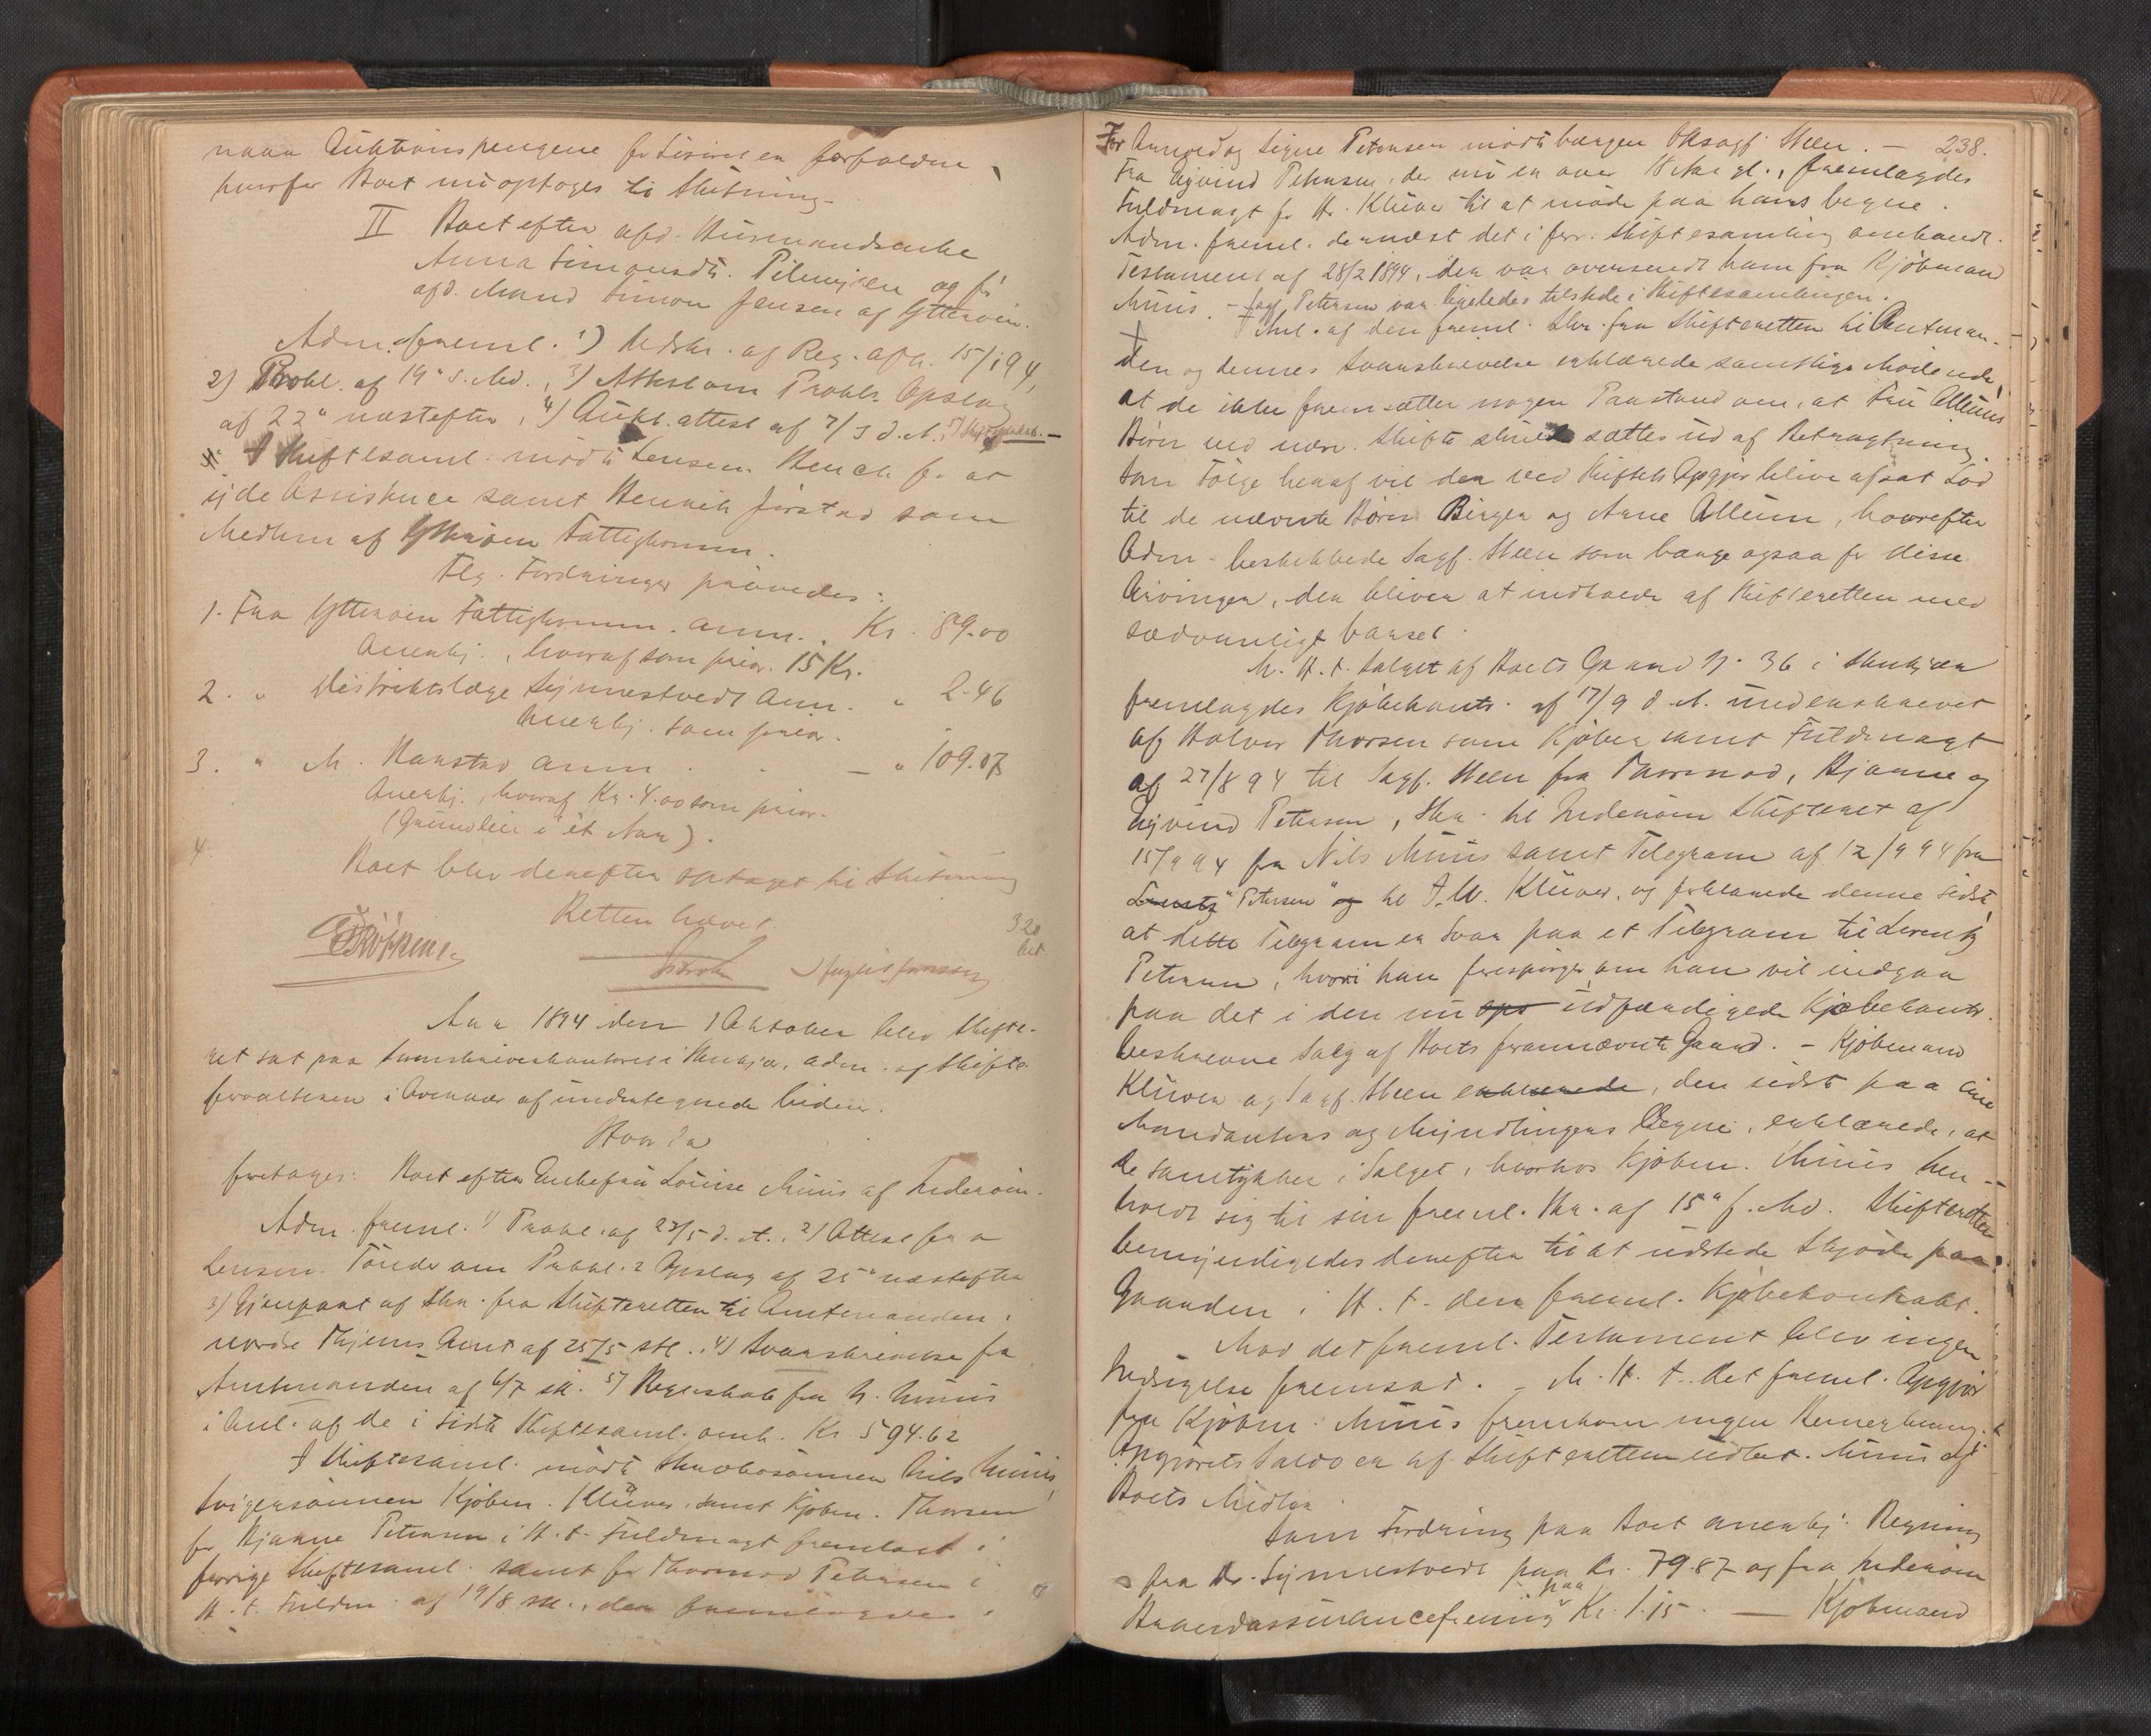 naar Auktionspengene for Løsøret er forfaldne,
hvorfor Boet nu optages til Slutning.
II Boet efter afd. Husmandsenke
Anna Simonsdtr. Pilemyren og før
afd. Mand Simon Jensen af Ytterøen.
Adm. freml. 1) Udskr. af Reg. afh. 15/1 94,
2) Prokl. af 19de s. Md., 3) Attest om Prokls. Opslag
af 22de næstefter, 4) Aukt. attest af 7/3 d. A.
I Skiftesaml. mødte Lensm. Hench for at
yde Assistance samt Henrik Jørstad som
Medlem af Ytterøen Fattigkomm.
Flg. Fordringer prøvedes:
1. Fra Ytterøen Fattigkomm. anm. Kr. 89.00
Anerkj., hvoraf som prior. 15 Kr.
2. " Distriktslæge Synnestvedt anm. " 2.46
Anerkj. som prior.
3. " M. Naustad anm. — " 109.07
Anerkj., hvoraf Kr. 4.00 som prior.
(Grundleie i et Aar).
4.
Boet blev derefter optaget til Slutning
Retten hævet.
Aar 1894 den 1 Oktober blev Skifte-
ret sat paa Sorenskriverkontoret i Stenkjær, adm. af Skifte-
forvalteren i Overvær af undertegnede Vidner.
Hvor da
foretages: Boet efter Enkefru Louise Müus af Inderøen.
Adm. freml. 1) Prokl. af 23/5 d. A., 2) Attest fra
Lensm. Tønder om Prokl.s Opslag af 25de næstefter
3) Gjenpart af Skr. fra Skifteretten til Amtmanden i
nordre Thjems Amt af 25/5 sl. 4) Svarskrivelse fra
Amtmanden af 6/7 sl. 5) Regnskab fra N. Müus
i Anl. af de i sidste Skiftesaml. omh. Kr 594.62
I Skiftesaml. mødte Stervbosønnen Nils Müus,
Svigersønnen Kjøbm. Klüver, samt Kjøbm. Thorsen
for Bjarne Petersen i H. t. Fuldmagt fremlagt i
forrige Skiftesaml. samt for Thormod Petersen i
H. t. Fuldm. af 19/8 sl., der fremlagdes.
238.
For Anmod og Signe Petersen mødte Værgen Sagf. Steen. —
Fra Øyvind Petersen, der nu er over 18 Aar gl., fremlagdes
Fuldmagt for Hr. Klüver til at møde paa hans Vegne.
Adm. freml. dernæst det i forr. Skiftesamling omhandl.
Testament af 28/2 1894, der var oversendt ham fra Kjøbmand
Müus. — Sagf. Petersen var ligeledes tilstede i Skiftesamlingen.
I Anl. af den freml. Skr. fra Skifteretten til Amtman-
den og dennes Svarskrivelse erklærede samtlige Mødende,
at de ikke fremsætter nogen Paastand om, at Fru Alleums
Børn ved nærv. Skifte skulde sættes ud af Betragtning.
Som Følge heraf vil der ved Skiftets Opgjør blive afsat Lod
til de nævnte Børn Birger og Anne Alleum, hvorefter
Adm. beskikkede Sagf. Steen som Værge ogsaa for disse
Arvinger, der bliver at indkalde af Skifteretten med
sædvanligt Varsel.
M. H. t. Salget af Boets Gaard N. 36 i Stenkjær
fremlagdes Kjøbekontr. af 17/9 d. A. underskrevet
af Halvor Thorsen som Kjøber samt Fuldmagt
af 27/8 94 til Sagf. Steen fra Thormod, Bjarne og
Øyvind Petersen, Skr. til Inderøens Skifteret af
15/9 94 fra Nils Müus samt Telegram af 12/9 94 fra
Lorentz "Petersen" og til J. M. Klüver, og forklarede denne sidste,
at dette Telegram er Svar paa et Telegram til Lorentz
Petersen, hvori han forespørges om han vil indgaa
paa det i den nu opr udfærdigede Kjøbekontr.
beskrevne Salg af Boets forannævnte Gaard. — Kjøbmand
Klüver og Sagf. Steen erklærede, den sidste paa sine
Mandanters og Myndlingers Vegne, erklærede, at
de samtykker i Salget, hvorhos Kjøbm. Müus hen-
holdt sig til sin freml. Skr. af 15de f. Md. Skifteretten
bemyndigedes derefter til at udstede Skjøde paa
Gaarden i H. t. den freml. Kjøbekontrakt.
Mod det freml. Testament blev ingen
Indsigelse fremsat. — M. H. t. det freml. Opgjør
fra Kjøbm. Müus fremkom ingen Bemerkning.
Opgjørets Saldo er af Skifteretten udbet. Müus af
Boets Midler.
Som Fordring paa Boet anerkj. Regning
fra Dr. Synnestvedt paa Kr. 79.87 og fra Inderøens
Brandassuranceforening paa Kr. 1.15. — Kjøbmand